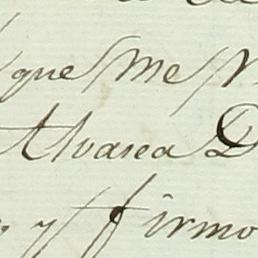 que Me
Alvarea D
y firmo